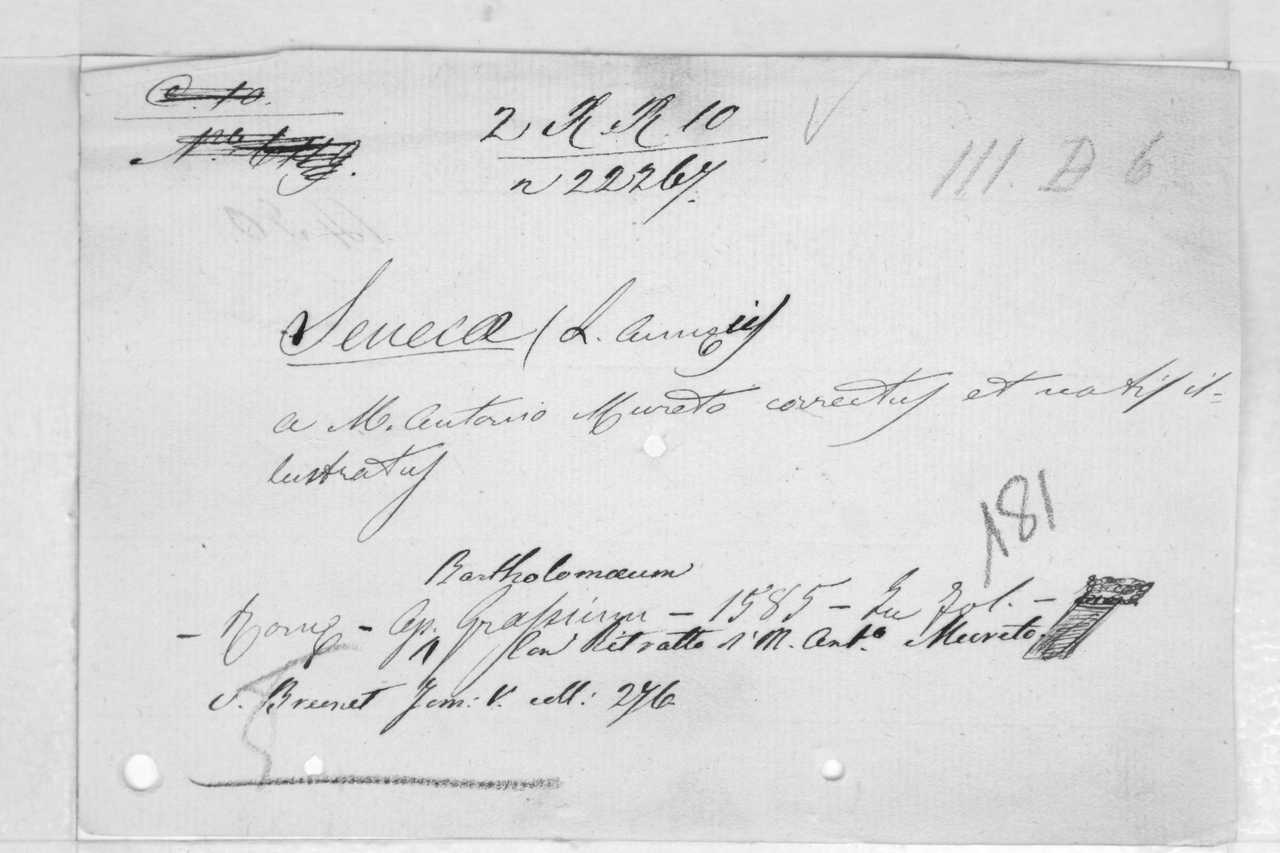 2 R. R. 10
n 22267.
III. B 6
Senecæ (L. Annæi)
a M. Antonio Mureto correctus et notis il-
lustratus
181
Bartholomæum
- Romæ - Ap. Grassium - 1585 - In Fol. -
Con Ritratto d' M. Ant.o Mureto.
v. Brunet Tom: V. coll: 276